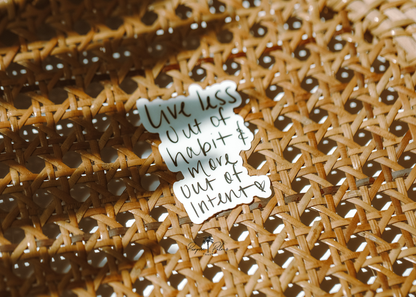 live less
out of
habit &
more
out of
Intent ♡